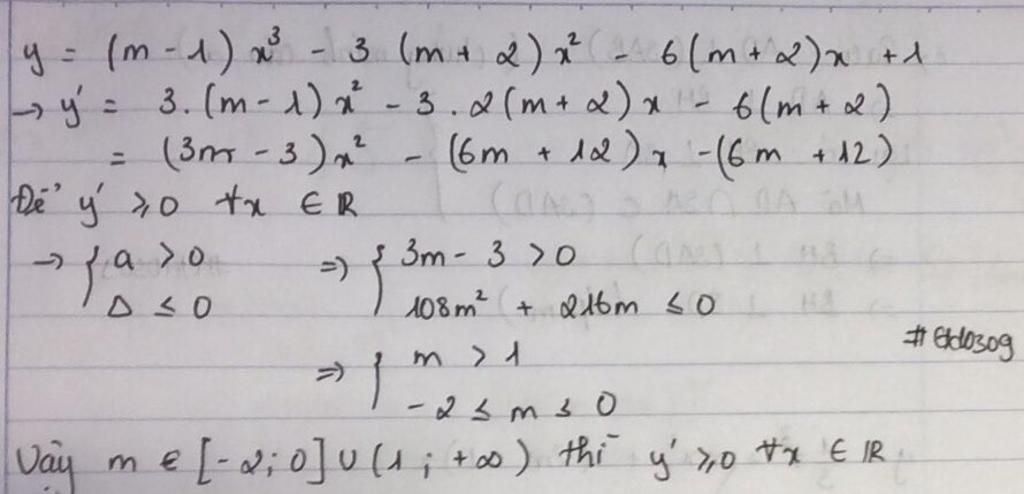 y = (m - 1) x³ - 3 (m + 2) x² - 6(m + 2)x + 1
→ y' = 3.(m - 1) x² - 3 . 2(m + 2) x - 6(m + 2)
= (3m - 3) x² - (6m + 12) x - (6m + 12)
Để y' ≥ 0 ∀x ∈ ℝ
→ { a > 0 ⇒ { 3m - 3 > 0
Δ ≤ 0 108m² + 216m ≤ 0
⇒ { m > 1
- 2 ≤ m ≤ 0
Vậy m ∈ [-2; 0] ∪ (1; +∞) thì y' ≥ 0 ∀x ∈ ℝ